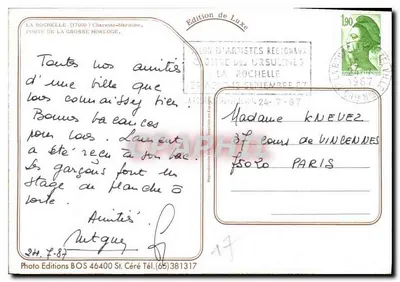 LA ROCHELLE (17000) Charente-Maritime,
PORTE DE LA GROSSE HORLOGE.
Edition de Luxe
1,90
D'ARTISTES REGIONAUX
URSULINES
LA ROCHELLE
24-7-87
Toutes nos amitiés
d'une ville que
vous connaissez bien.
Bonnes vacances
pour vous. Laurent
a été reçu à son bac.
Les garçons font un
stage de planche à
voile.
Amitiés.
24.7.87
Madame KNEVEZ
37 Cours de VINCENNES
75020 PARIS
17
Photo Editions BOS 46400 St. Céré Tél. (65)381317